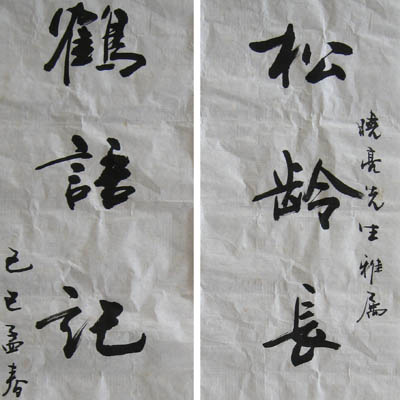 曉亮先生雅属
松龄長
鶴語記
己巳孟春